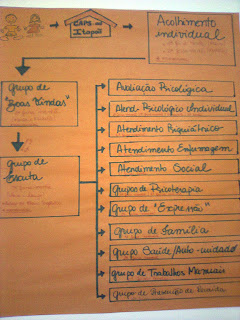 CAPS de
Itapoã
Acolhimento
individual
Grupo de
"Boas Vindas"
Grupo de
Escuta
Avaliação Psicológica
Atend. Psicológico Individual
Atendimento Psiquiátrico
Atendimento Enfermagem
Atendimento Social
Grupos de Psicoterapia
Grupo de "Expressão"
Grupo de Família
Grupo Saúde/Auto-cuidado
Grupo de Trabalhos Manuais
Grupo de Geração de Renda